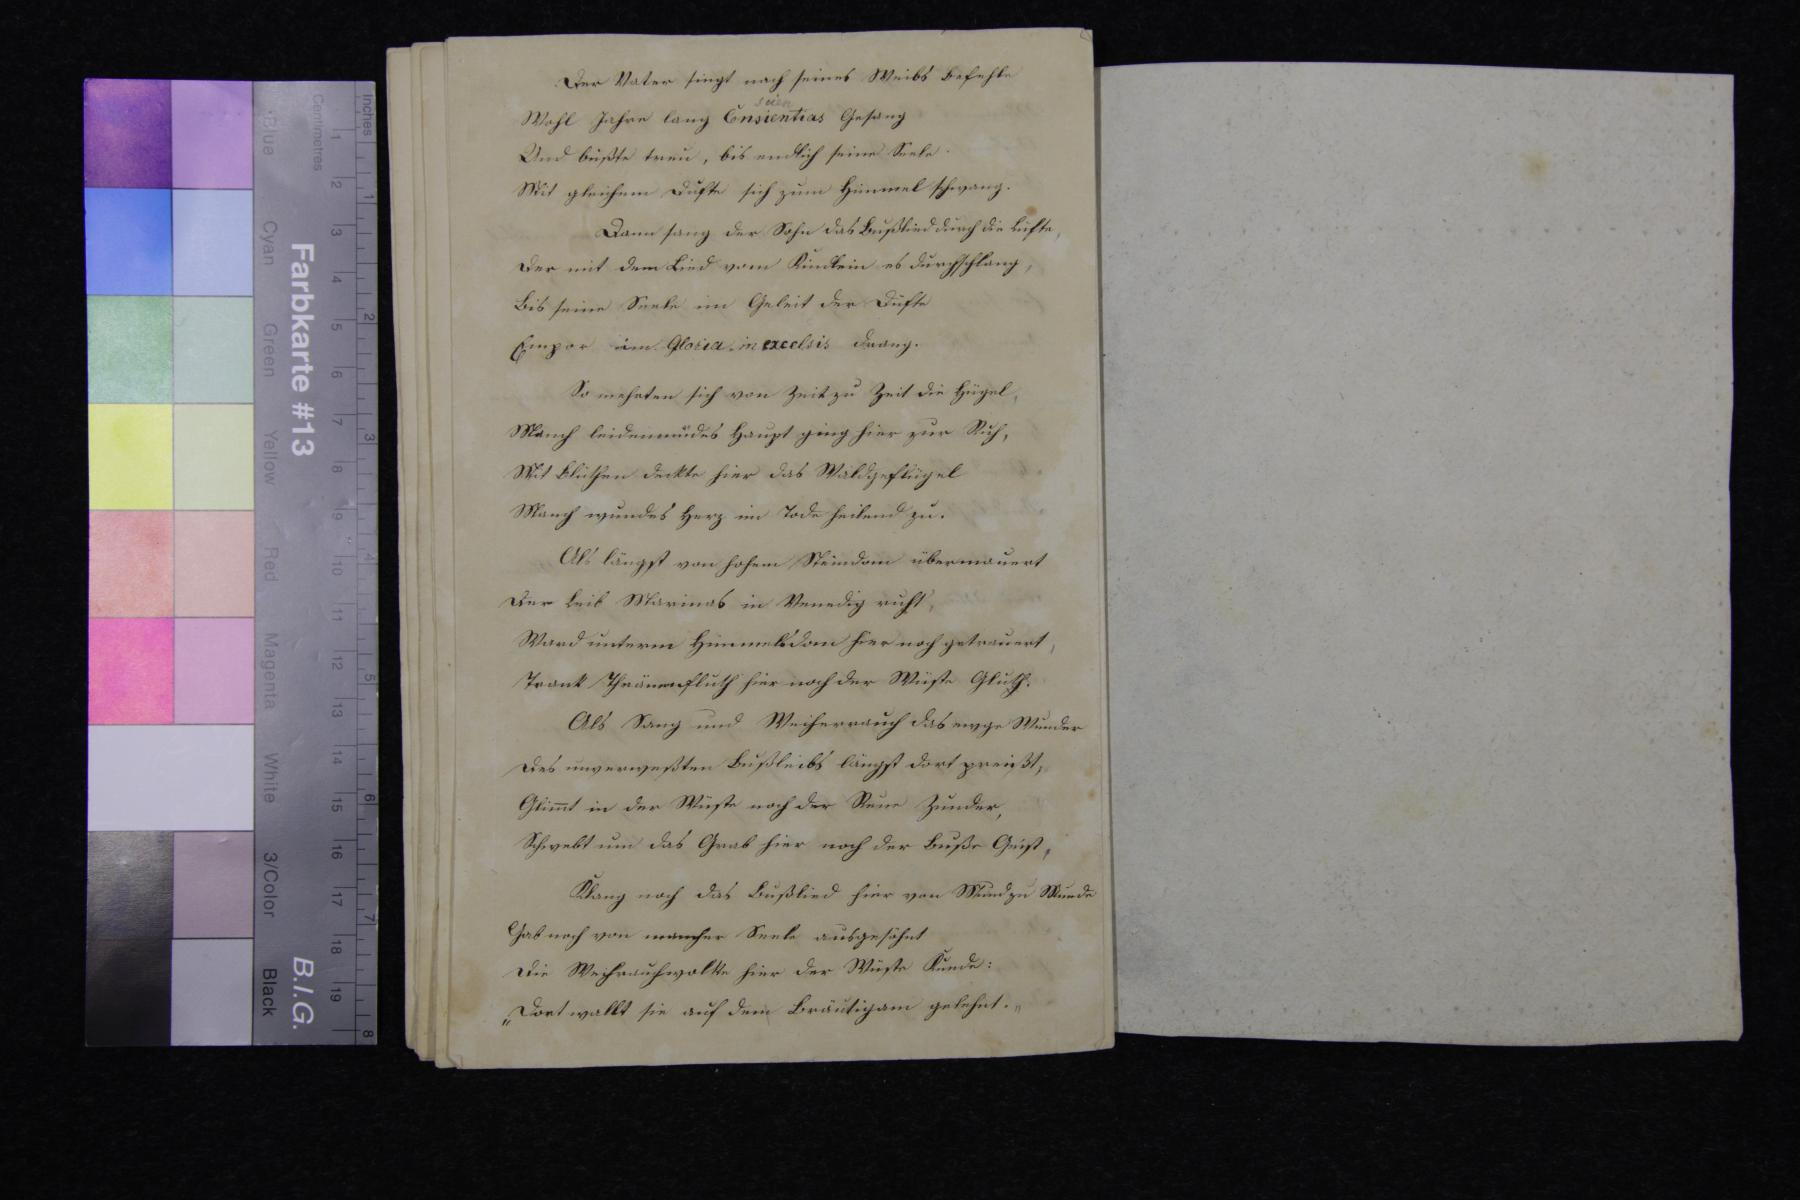 Der Vater singt nach seines Weibs Befehle
scien
Wohl Jahre lang Ensientias Gesang
Und büßte treu, bis endlich seine Seele
Mit gleichem Dufte sich zum Himmel schwang.
Dann sang der Sohn das Bußlied durch die Lüfte,
Der mit dem Lied vom Kindlein es durchschlang,
Bis seine Seele im Geleit der Düfte
Empor im Gloria in excelsis drang.
So mehrten sich von Zeit zu Zeit die Hügel,
Manch leidenmüdes Haupt ging hier zur Ruh,
Mit Blüthen deckte hier das Waldgeflügel
Manch wundes Herz im Tode heilend zu.
Als längst von hohem Steindom übermauert
Der Leib Marinas in Venedig ruht,
Ward unterm Himmelsdom hier noch getrauert,
Trank Thränenfluth hier noch der Wüste Gluth.
Als Sang und Weiherrauch das ewge Wunder
Des unverweßten Bußleibs längst dort preißt,
Glimt in der Wüste noch der Reue Zunder,
Schwebt um das Grab hier noch der Buße Geist,
Klang noch das Bußlied hier von Mund zu Munde
Gab noch von mancher Seele ausgesöhnt
Die Weihrauchwolke hier der Wüste Kunde:
„Dort wallt sie auf dem Bräutigam gelehnt.„
Farbkarte #13
B.I.G.
Inches
Centimetres
1 2 3 4 5 6 7 8 9 10 11 12 13 14 15 16 17 18 19
1 2 3 4 5 6 7 8
Blue
Cyan
Green
Yellow
Red
Magenta
White
3/Color
Black